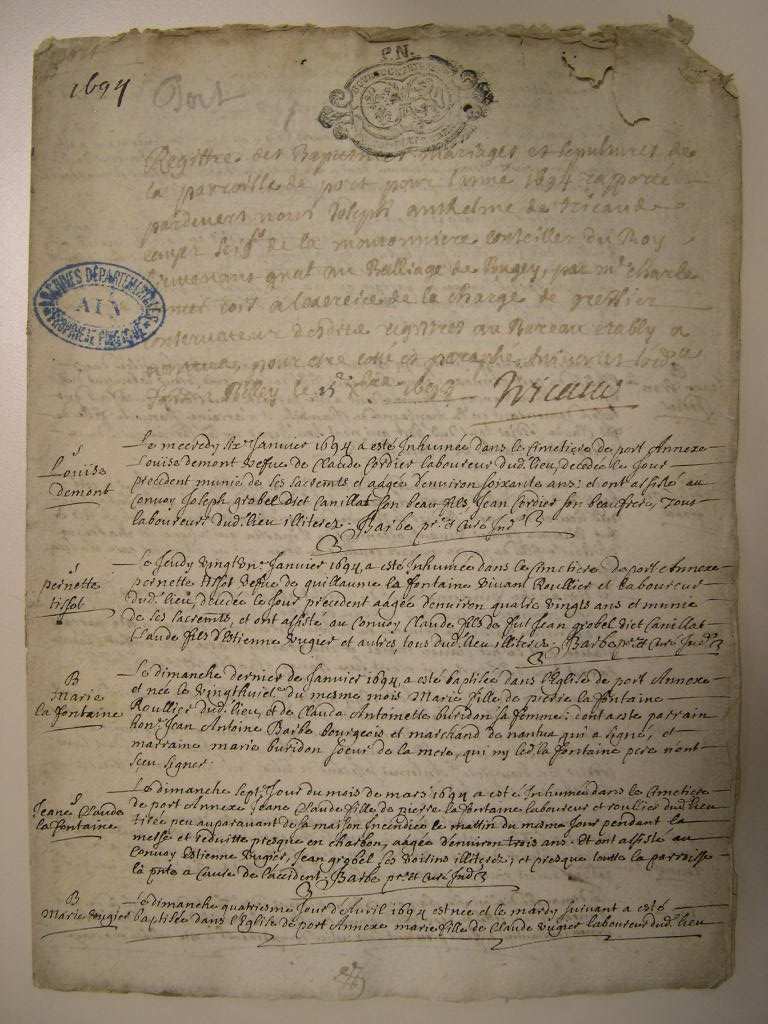 1694
Port
P.N.
Registre des Baptesmes mariages et sepultures de
la parroisse de port pour l'année 1694 rapporté
pardevers nous Joseph anthelme de Tricaud
de la moutonniere conseiller du Roy
Lieutenant gnal au Balliage de Bugey, par mr Charle
a l'exercice de la charge de greffier
conservateur desdits registres au Bureau etably a
pour etre cotté et paraphé
Belley le 1694
Tricaud
ARCHIVES DÉPARTEMENTALES
AIN
PROPRIÉTÉ PUBLIQUE
S
Louise
demont
Le mecredy six Janvier 1694 a esté Inhumée dans le Cimetiere de port Annexe
Louise demont veffve de Claude Cordier laboureur dud. lieu, decedée le Jour
precedent munie de ses sacremts et aagée d'environ soixante ans: et ont assisté au
Convoy Joseph grobel dict Canillat son beau fils, Jean Cordier son beaufrere, Tous
laboureurs dud. lieu illiterez. Barbe ptre et Curé Ind.
S
pernette
tissot
Le Jeudy vingt Janvier 1694, a esté Inhumée dans le Cimetiere de port Annexe
pernette tissot vefve de guillaume la fontaine vivant Roullier et Laboureur
dud. lieu, decedée le Jour precedent aagée d'environ quatre vingts ans et munie
de ses sacremts, et ont assisté au Convoy Claude fils de fut Jean grobel dict Canillat
Claude fils d'Estienne vugier et autres, tous dud. lieu illiterez. Barbe ptre et Curé Ind.
B
Marie
la fontaine
Le dimanche dernier de Janvier 1694, a esté baptisée dans l'Eglise de port Annexe
et née le vingthuict du mesme mois Marie fille de pierre la fontaine
Roullier dud. lieu, et de Clauda Antoinette buridon sa femme: ont esté parrain
hon. Jean Antoine Barbe bourgeois et marchand de nantua qui a signé, et
marraine marie buridon soeur de la mere, qui ny led. la fontaine pere n'ont
sceu signer.
S
Jeane Clauda
la fontaine
Le dimanche sept. Jour du mois de mars 1694 a esté Inhumée dans le Cimetiere
de port Annexe Jeane Clauda fille de pierre la fontaine laboureur et roulier dud. lieu
tirée peu auparavant de sa maison Incendiée le mattin du mesme Jour pendant la
messe et reduitte presque en charbon, aagée d'environ trois ans. Et ont assisté au
Convoy Estienne vugier, Jean grobel ses voisins illiterez; et presque toutte la parroisse
la pnte a Cause de l'accident. Barbe ptre et Curé Ind.
B
Marie vugier
Le dimanche quatriesme Jour d'Avril 1694 est née et le mardy suivant a esté
baptisée dans l'Eglise de port Annexe marie fille de Claude vugier laboureur dud. lieu